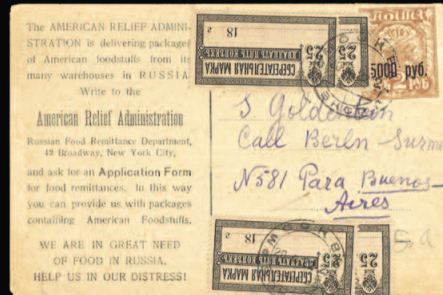 The AMERICAN RELIEF ADMINI-
STRATION is delivering packages
of American foodstuffs from its
many warehouses in RUSSIA.
Write to the
American Relief Administration
Russian Food Remittance Department,
42 Broadway, New York City,
and ask for an Application Form
for food remittances. In this way
you can provide us with packages
containing American Foodstuffs.
WE ARE IN GREAT NEED
OF FOOD IN RUSSIA.
HELP US IN OUR DISTRESS!
СБЕРЕГАТЕЛЬНАЯ МАРКА
25
25
18
5000 руб.
S Goldstein
Call Berln Surm
N 581 Para Buenos-
Aires
S. A
СБЕРЕГАТЕЛЬНАЯ МАРКА
25
25
18